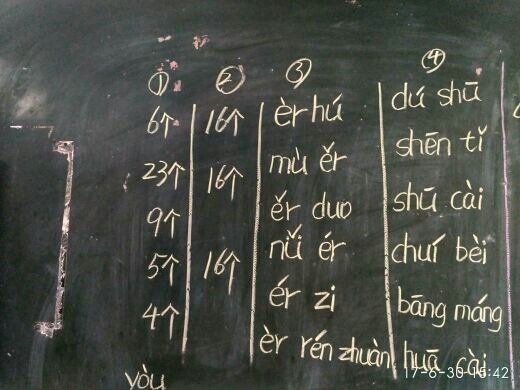 ①
6个
23个
9个
5个
4个
②
16个
16个
16个
③
èr hú
mù ěr
ěr duo
nǚ ér
ér zi
èr rén zhuàn
④
dú shū
shēn tǐ
shū cài
chuí bèi
bāng máng
huā cài
yòu